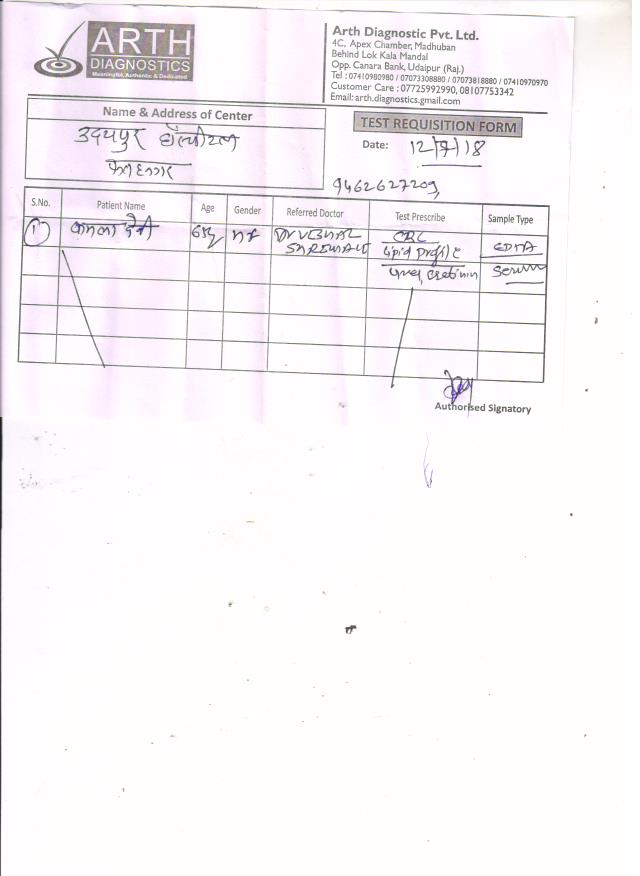 ARTH
DIAGNOSTICS
Meaningful, Authentic & Dedicated
Arth Diagnostic Pvt. Ltd.
4C, Apex Chamber, Madhuban
Behind Lok Kala Mandal
Opp. Canara Bank, Udaipur (Raj.)
Tel : 07410980980 / 07073308880 / 07073818880 / 07410970970
Customer Care : 07725992990, 08107753342
Email: arth.diagnostics.gmail.com
Name & Address of Center
उदयपुर हॉस्पीटल
TEST REQUISITION FORM
Date: 12/9/18
9462627209
S.No. Patient Name Age Gender Referred Doctor Test Prescribe Sample Type
1 कमला देवी CBC EDTA
Lipid Profile
Serum
Authorised Signatory